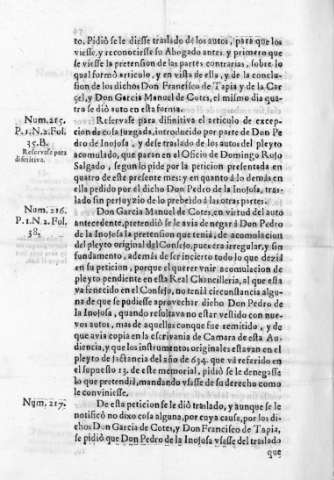 to. Pidió se le diesse traslado de los autos, para que los
viesse, y reconociesse su Abogado antes, y primero que
se viesse la pretension de las partes contrarias, sobre lo
qual formò articulo, y en vista de ella, y de la conclu-
sion de los dichos Don Francisco de Tapia y de la Car
cel, y Don Garcia Manuel de Cotes, el mismo dia qua-
tro se diò auto en esta forma.
Num. 215.
P. 1. N. 2. Fol.
35. B.
Reservase para
difinitiva.
Reservase para difinitiva el articulo de excep-
cion de cosa juzgada, introducido por parte de Don Pe
dro de Inojosa, y dese traslado de los autos del pleyto
acomulado, que paran en el Oficio de Domingo Rojo
Salgado, segun lo pide por la peticion presentada en
quatro de este presente mes; y en quanto à lo demàs en
ella pedido por el dicho Don Pedro de la Inojosa, tras-
lado sin perjuyzio de lo probeido à las otras partes.
Num. 216.
P. 1. N. 2. Fol.
38.
Don Garcia Manuel de Cotes, en virtud del auto
antecedente, pretendiò se le avia de negar à Don Pedro
de la Inojosa la pretension que tenia, de acomulacion
del pleyto original del Consejo, pues era irregular, y sin
fundamento, además de ser incierto todo lo que dezia
en su peticion, porque el querer venir acomulacion de
pleyto pendiente en esta Real Chancilleria, al que esta
va fenecido en el Consejo, no tenia circunstancia algu-
na de que se pudiesse aprovechar dicho Don Pedro de
la Inojosa, quando resultava no estar vestido con nue-
vos autos, mas de aquellos con que fue remitido, y de
que avia copia en la escrivania de Camara de esta Au-
diencia, y que los instrumentos originales estavan en el
pleyto de jactancia del año de 634. que và referido en
el supuesto 13. de este memorial, pidiò se le denegasse
lo que pretendia, mandando viasse de su derecho como
le conviniesse.
Num. 217.
De esta peticion se le diò traslado, y aunque se le
notificò no dixo cosa alguna, por cuya causa, por los di-
chos Don Garcia de Cotes, y Don Francisco de Tapia,
se pidiò que Don Pedro de la Inojosa viasse del traslado
que